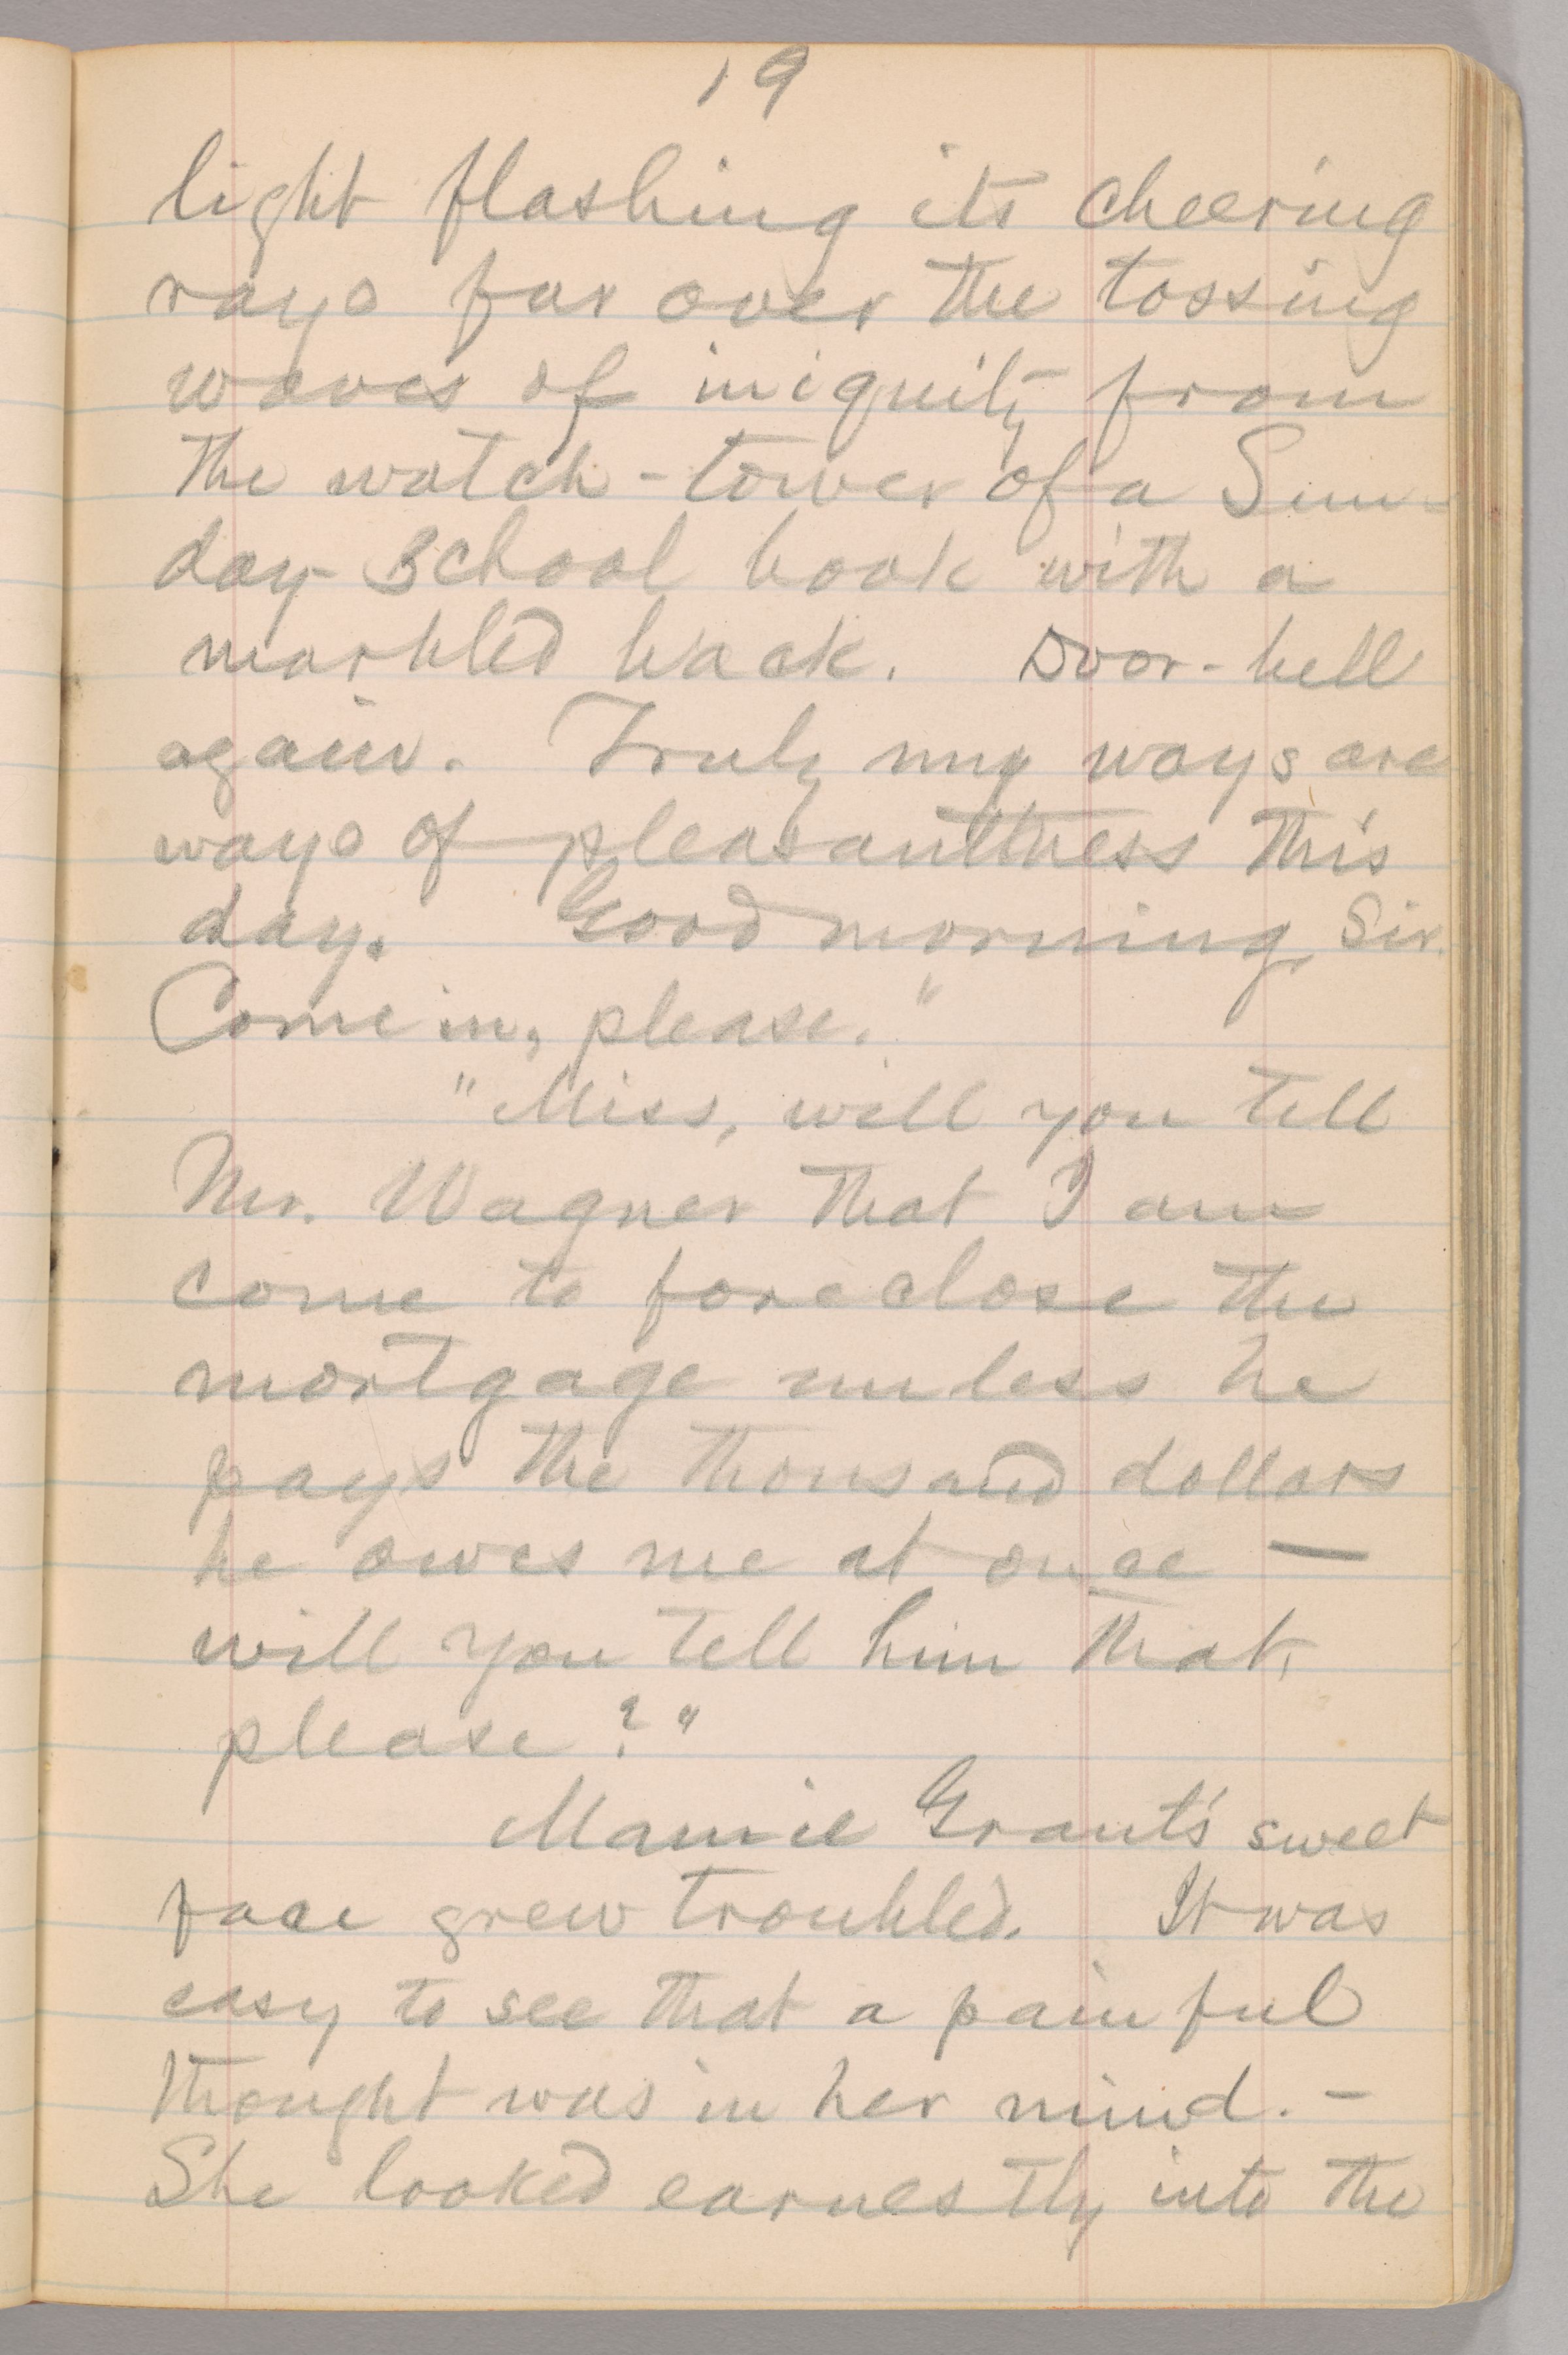 19
light flashing its cheering
rays far over the tossing
waves of iniquity from
the watch-tower of a Sun-
day-School book with a
marbled back. Door-bell
again. Truly my ways are
ways of pleasantness this
day. Good morning, Sir.
Come in, please."
"Miss, will you tell
Mr. Wagner that I am
come to foreclose the
mortgage unless he
pays the thousand dollars
he owes me at once —
will you tell him that,
please?"
Mamie Grant's sweet
face grew troubled. It was
easy to see that a painful
thought was in her mind. —
She looked earnestly into the